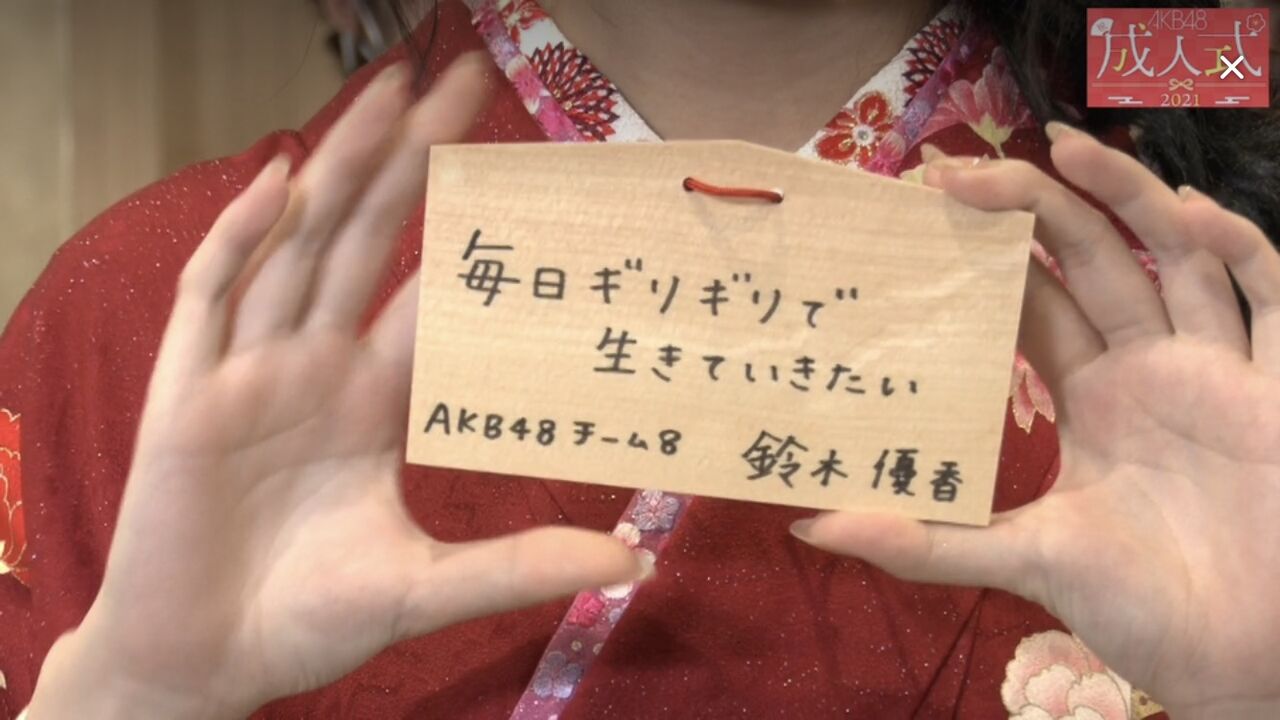 毎日ギリギリで
生きていきたい
AKB48 チーム8 鈴木 優香
AKB48
成人式
2021